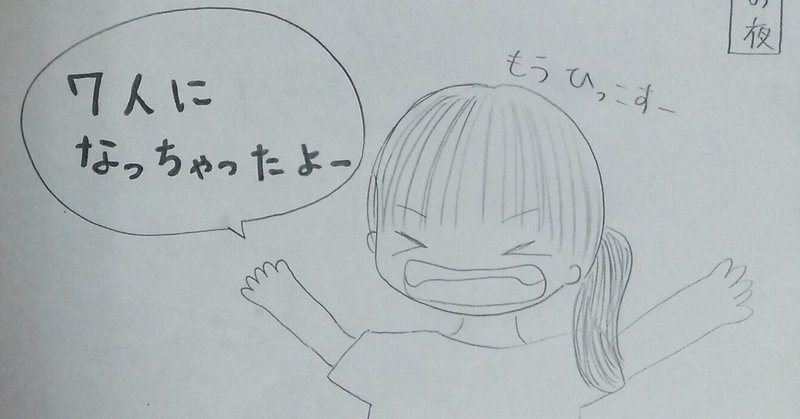 の夜
7人に
なっちゃったよー
もうひっこすー